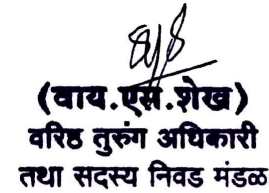 (वाय.एस.शेख)
वरिष्ठ तुरुंग अधिकारी
तथा सदस्य निवड मंडळ